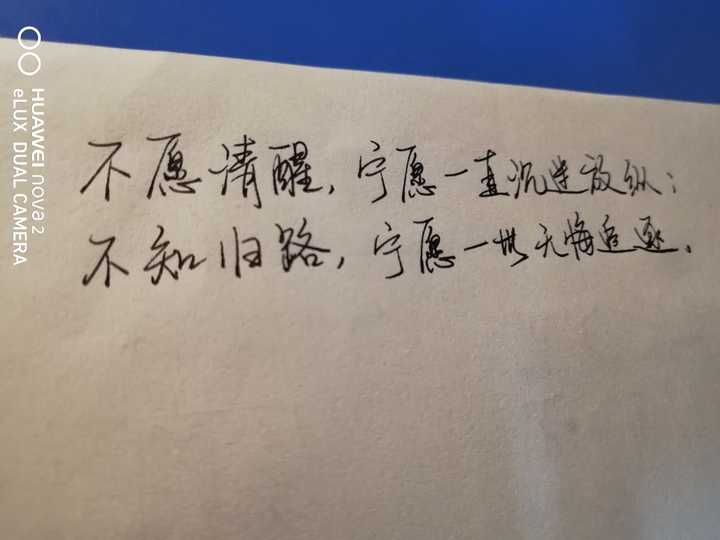 不愿清醒，宁愿一直沉迷放纵；
不知归路，宁愿一世无悔追逐。
HUAWEI nova 2
eLUX DUAL CAMERA